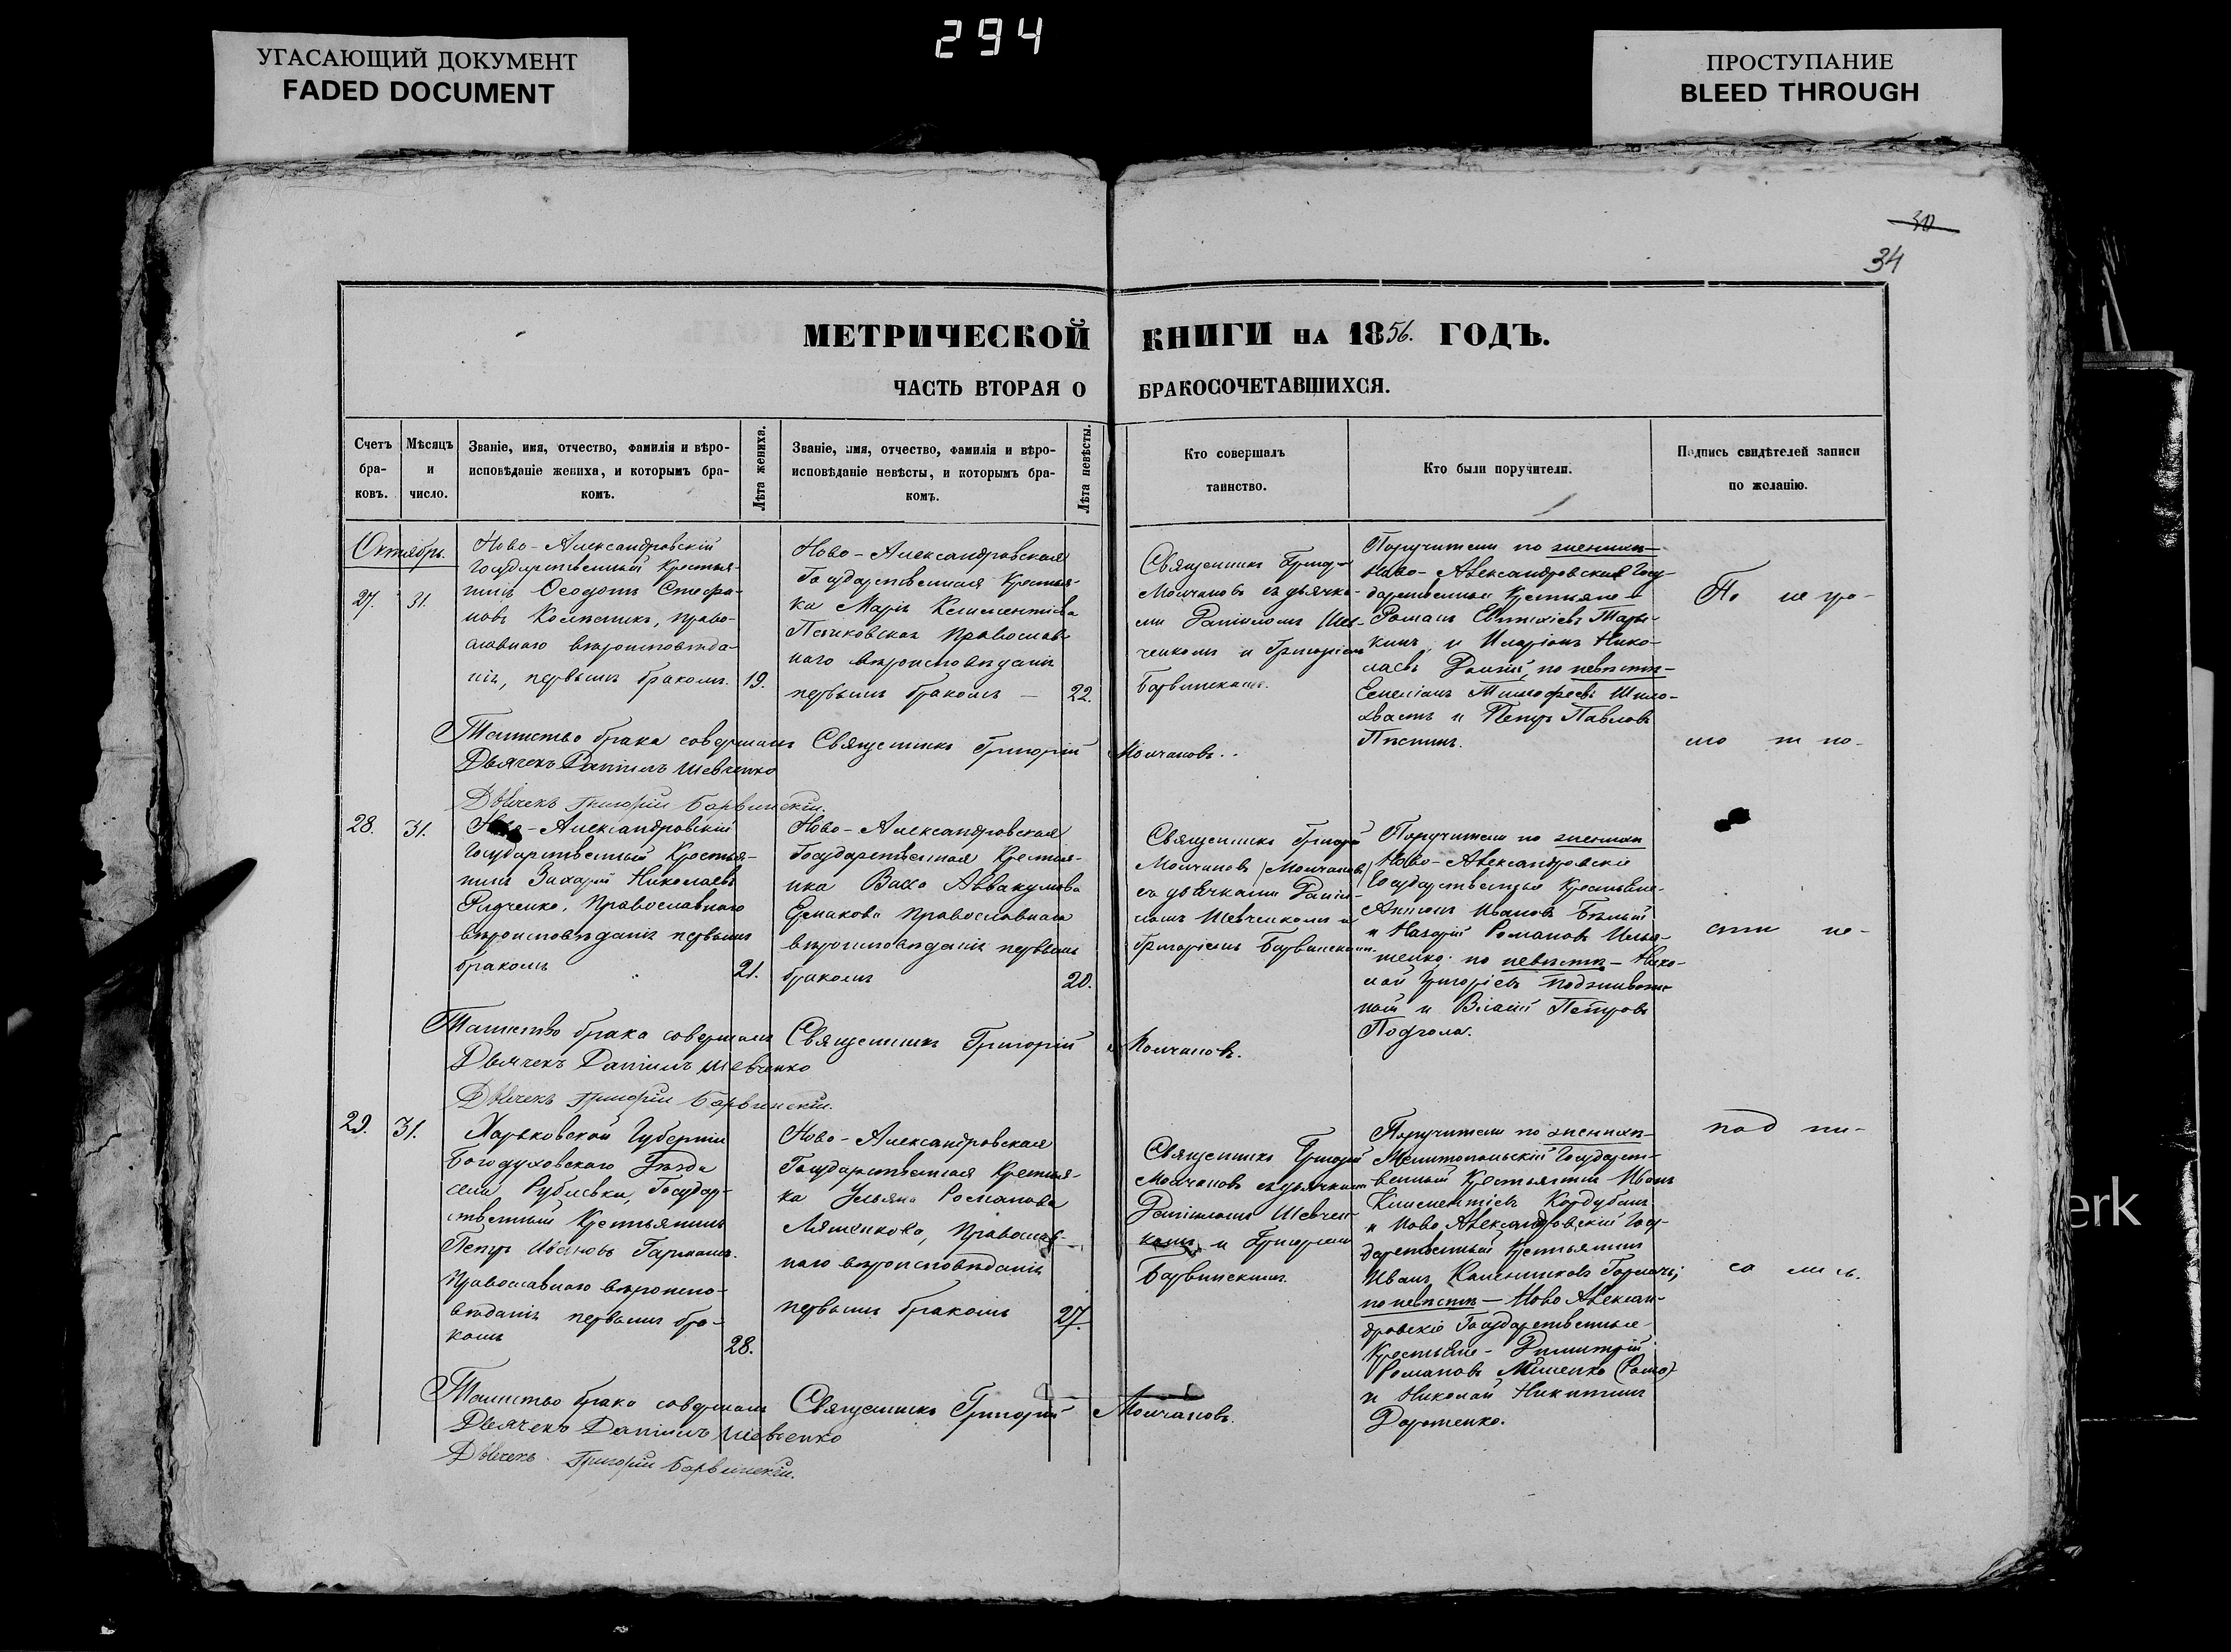 294
УГАСАЮЩИЙ ДОКУМЕНТ
FADED DOCUMENT
ПРОСТУПАНИЕ
BLEED THROUGH
30
34
МЕТРИЧЕСКОЙ КНИГИ НА 1856. ГОДЪ.
ЧАСТЬ ВТОРАЯ О БРАКОСОЧЕТАВШИХСЯ.
Счетъ
бра-
ковъ.
Мѣсяцъ
и
число.
Званіе, имя, отчество, фамилія и вѣро-
исповѣданіе жениха, и которымъ бра-
комъ.
Лѣта жениха.
Званіе, имя, отчество, фамилія и вѣро-
исповѣданіе невѣсты, и которымъ бра-
комъ.
Лѣта невѣсты.
Кто совершалъ
таинство.
Кто были поручители.
Подпись свидѣтелей записи
по желанію.
Октябрь.
27.
31.
Ново-Александровскій
Государственный Крестья-
нинъ Ѳеодотъ Стефа-
новъ право-
славнаго вѣроисповѣда-
нія, первымъ бракомъ.
19.
Ново-Александровская
Государственная Крестья-
ка Марія Климентіева
Православ-
наго вѣроисповѣданія
первымъ бракомъ —
22.
Священникъ Григо-
Молчановъ съ дьячка-
ми Даніиломъ Шев-
ченкомъ и Григоріемъ
Барвинскимъ.
Поручители по женихѣ —
Ново-Александровскіе Госу-
дарственные Крестьяне —
Романъ Евтихіевъ
и Иларіонъ Нико-
лаевъ по невѣстѣ —
Емеліанъ Тимофеевъ Шило-
хвостъ и Петръ Павловъ
По не гра-
Таинство брака совершалъ Священникъ Григорій Молчановъ.
мо ти по-
Дьячекъ Даніилъ Шевченко
Дьячекъ Григорій Барвинскій.
28.
31.
Ново-Александровскій
Государственный Крестья-
нинъ Захарій Николаевъ
Православнаго
вѣроисповѣданія первымъ
бракомъ
21.
Ново-Александровская
Государственная Крестья-
нка Васса Аввакумова
Ермакова Православнаго
вѣроисповѣданія первымъ
бракомъ
20.
Священникъ Григорій
Молчановъ /Молчановъ/
съ дьячками Даніи-
ломъ Шевченкомъ и
Григоріемъ Барвинскимъ.
Поручители по женихѣ
Ново-Александровскіе
Государственные Крестьяне-
Антонъ Ивановъ Бѣлый
и Назарій Романовъ Илья-
шенко. по невѣстѣ — Нико-
лай Григорьевъ
и Власій Петровъ
сти не-
Таинство брака совершалъ Священникъ Григорій Молчановъ.
Дьячекъ Даніилъ Шевченко
Дьячекъ Григорій Барвинскій.
29.
31.
Харьковской Губерніи
Богодуховскаго Уѣзда
села Рублевки, Государ-
ственный Крестьянинъ
Петръ Ивановъ
Православнаго вѣроиспо-
вѣданія первымъ бра-
комъ
28.
Ново-Александровская
Государственная Крестья-
ка Ульяна Романова
Ляшенкова, Православ-
наго вѣроисповѣданія
первымъ бракомъ
27.
Священникъ Григорій
Молчановъ съ дьячками
Даніиломъ Шевчен-
комъ и Григоріемъ
Барвинскимъ.
Поручители по женихѣ —
Мелитопольскій Государст-
венный Крестьянинъ Иванъ
Климентіевъ Кордубанъ
и Ново Александровскій Госу-
дарственный Крестьянинъ
Иванъ
по невѣстѣ — Ново Алексан-
дровскіе Государственные
Крестьяне — Димитрій
Романовъ
и Николай Никитинъ
Дорошенко.
под пи-
са лись.
Таинство брака совершалъ Священникъ Григорій Молчановъ.
Дьячекъ Даніилъ Шевченко
Дьячекъ Григорій Барвинскій.
erk